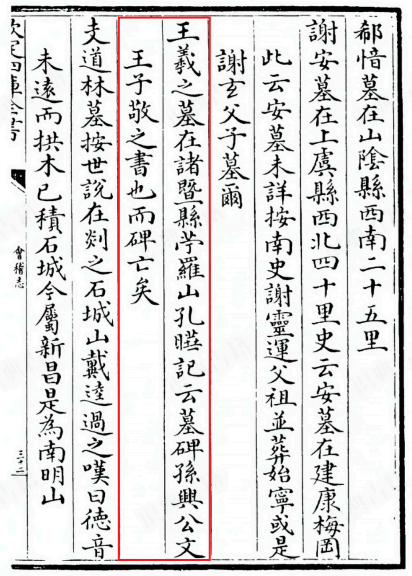 郗愔墓在山陰縣西南二十五里
謝安墓在上虞縣西北四十里史云安墓在建康梅岡
此云安墓未詳按南史謝靈運父祖並葬始寧或是
謝玄父子墓爾
王羲之墓在諸暨縣苧羅山孔曄記云墓碑孫興公文
王子敬之書也而碑亡矣
支道林墓按世說在剡之石城山戴逵過之嘆曰德音
未遠而拱木已積石城今屬新昌是為南明山
欽定四庫全書
會稽志